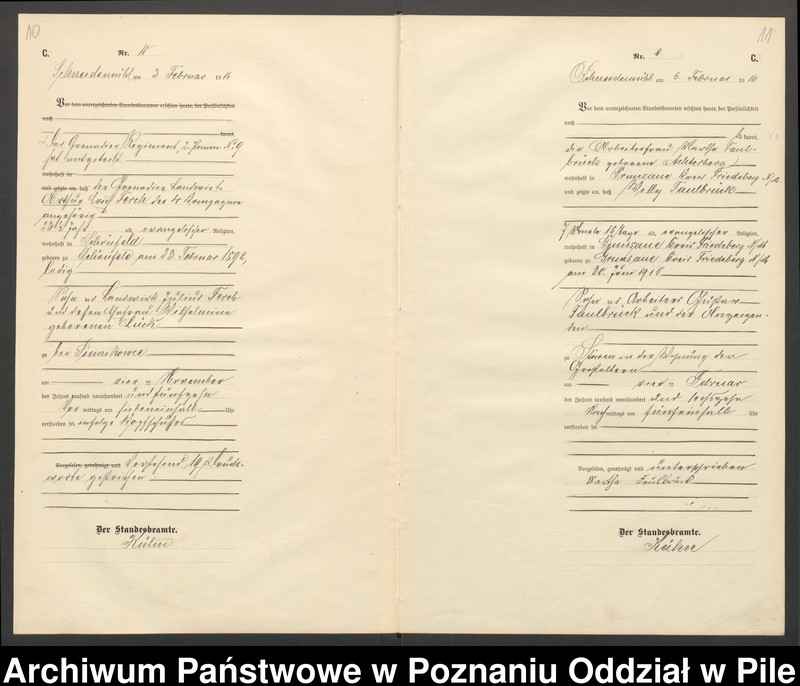 10
C.
Nr. 10
Schneidemühl am 3. Februar 1916
Vor dem unterzeichneten Standesbeamten erschien heute, der Persönlichkeit
nach
kannt,
Das Grenadier Regiment, 2. Pomm. No 9
hat mitgeteilt
wohnhaft in
und zeigte an, daß der Grenadier Landwirt
Arthur Erich Ferch der 4 Kompagnie
angehörig
23½ Jahr alt, evangelischer Religion,
wohnhaft in Schönfeld
geboren zu Schönfeld am 23. Februar 1892,
ledig
Sohn des Landwirts Julius Ferch
und dessen Ehefrau Wilhelmine
geborenen Lück
zu bei Siemikowce
am vier November
des Jahres tausend neunhundert und fünfzehn
Vor mittags um siebeneinhalb Uhr
verstorben sei infolge Kopfschusses
Vorgelesen, genehmigt und Vorstehend 19 Druck-
worte gestrichen
Der Standesbeamte.
Kühn
11
Nr. 11
C.
Schneidemühl am 5. Februar 1916
Vor dem unterzeichneten Standesbeamten erschien heute, der Persönlichkeit
nach
be kannt,
die Arbeiterfrau Martha Faul-
brück geborene Achterberg
wohnhaft in Kreis Friedeberg N/M
und zeigte an, daß Willy Faulbrück
7 Monate 15 Tage alt, evangelischer Religion,
wohnhaft in Kreis Friedeberg N/M
geboren zu Kreis Friedeberg N/M
am 20. Juni 1915
Sohn des Arbeiters Gustav
Faulbrück und der Anzeigen-
den
zu in der Wohnung der
Großeltern
am vier Februar
des Jahres tausend neunhundert und sechzehn
Nach mittags um fünfeinhalb Uhr
verstorben sei
Vorgelesen, genehmigt und unterschrieben
Martha Faulbrück
Der Standesbeamte.
Kühn
Archiwum Państwowe w Poznaniu Oddział w Pile